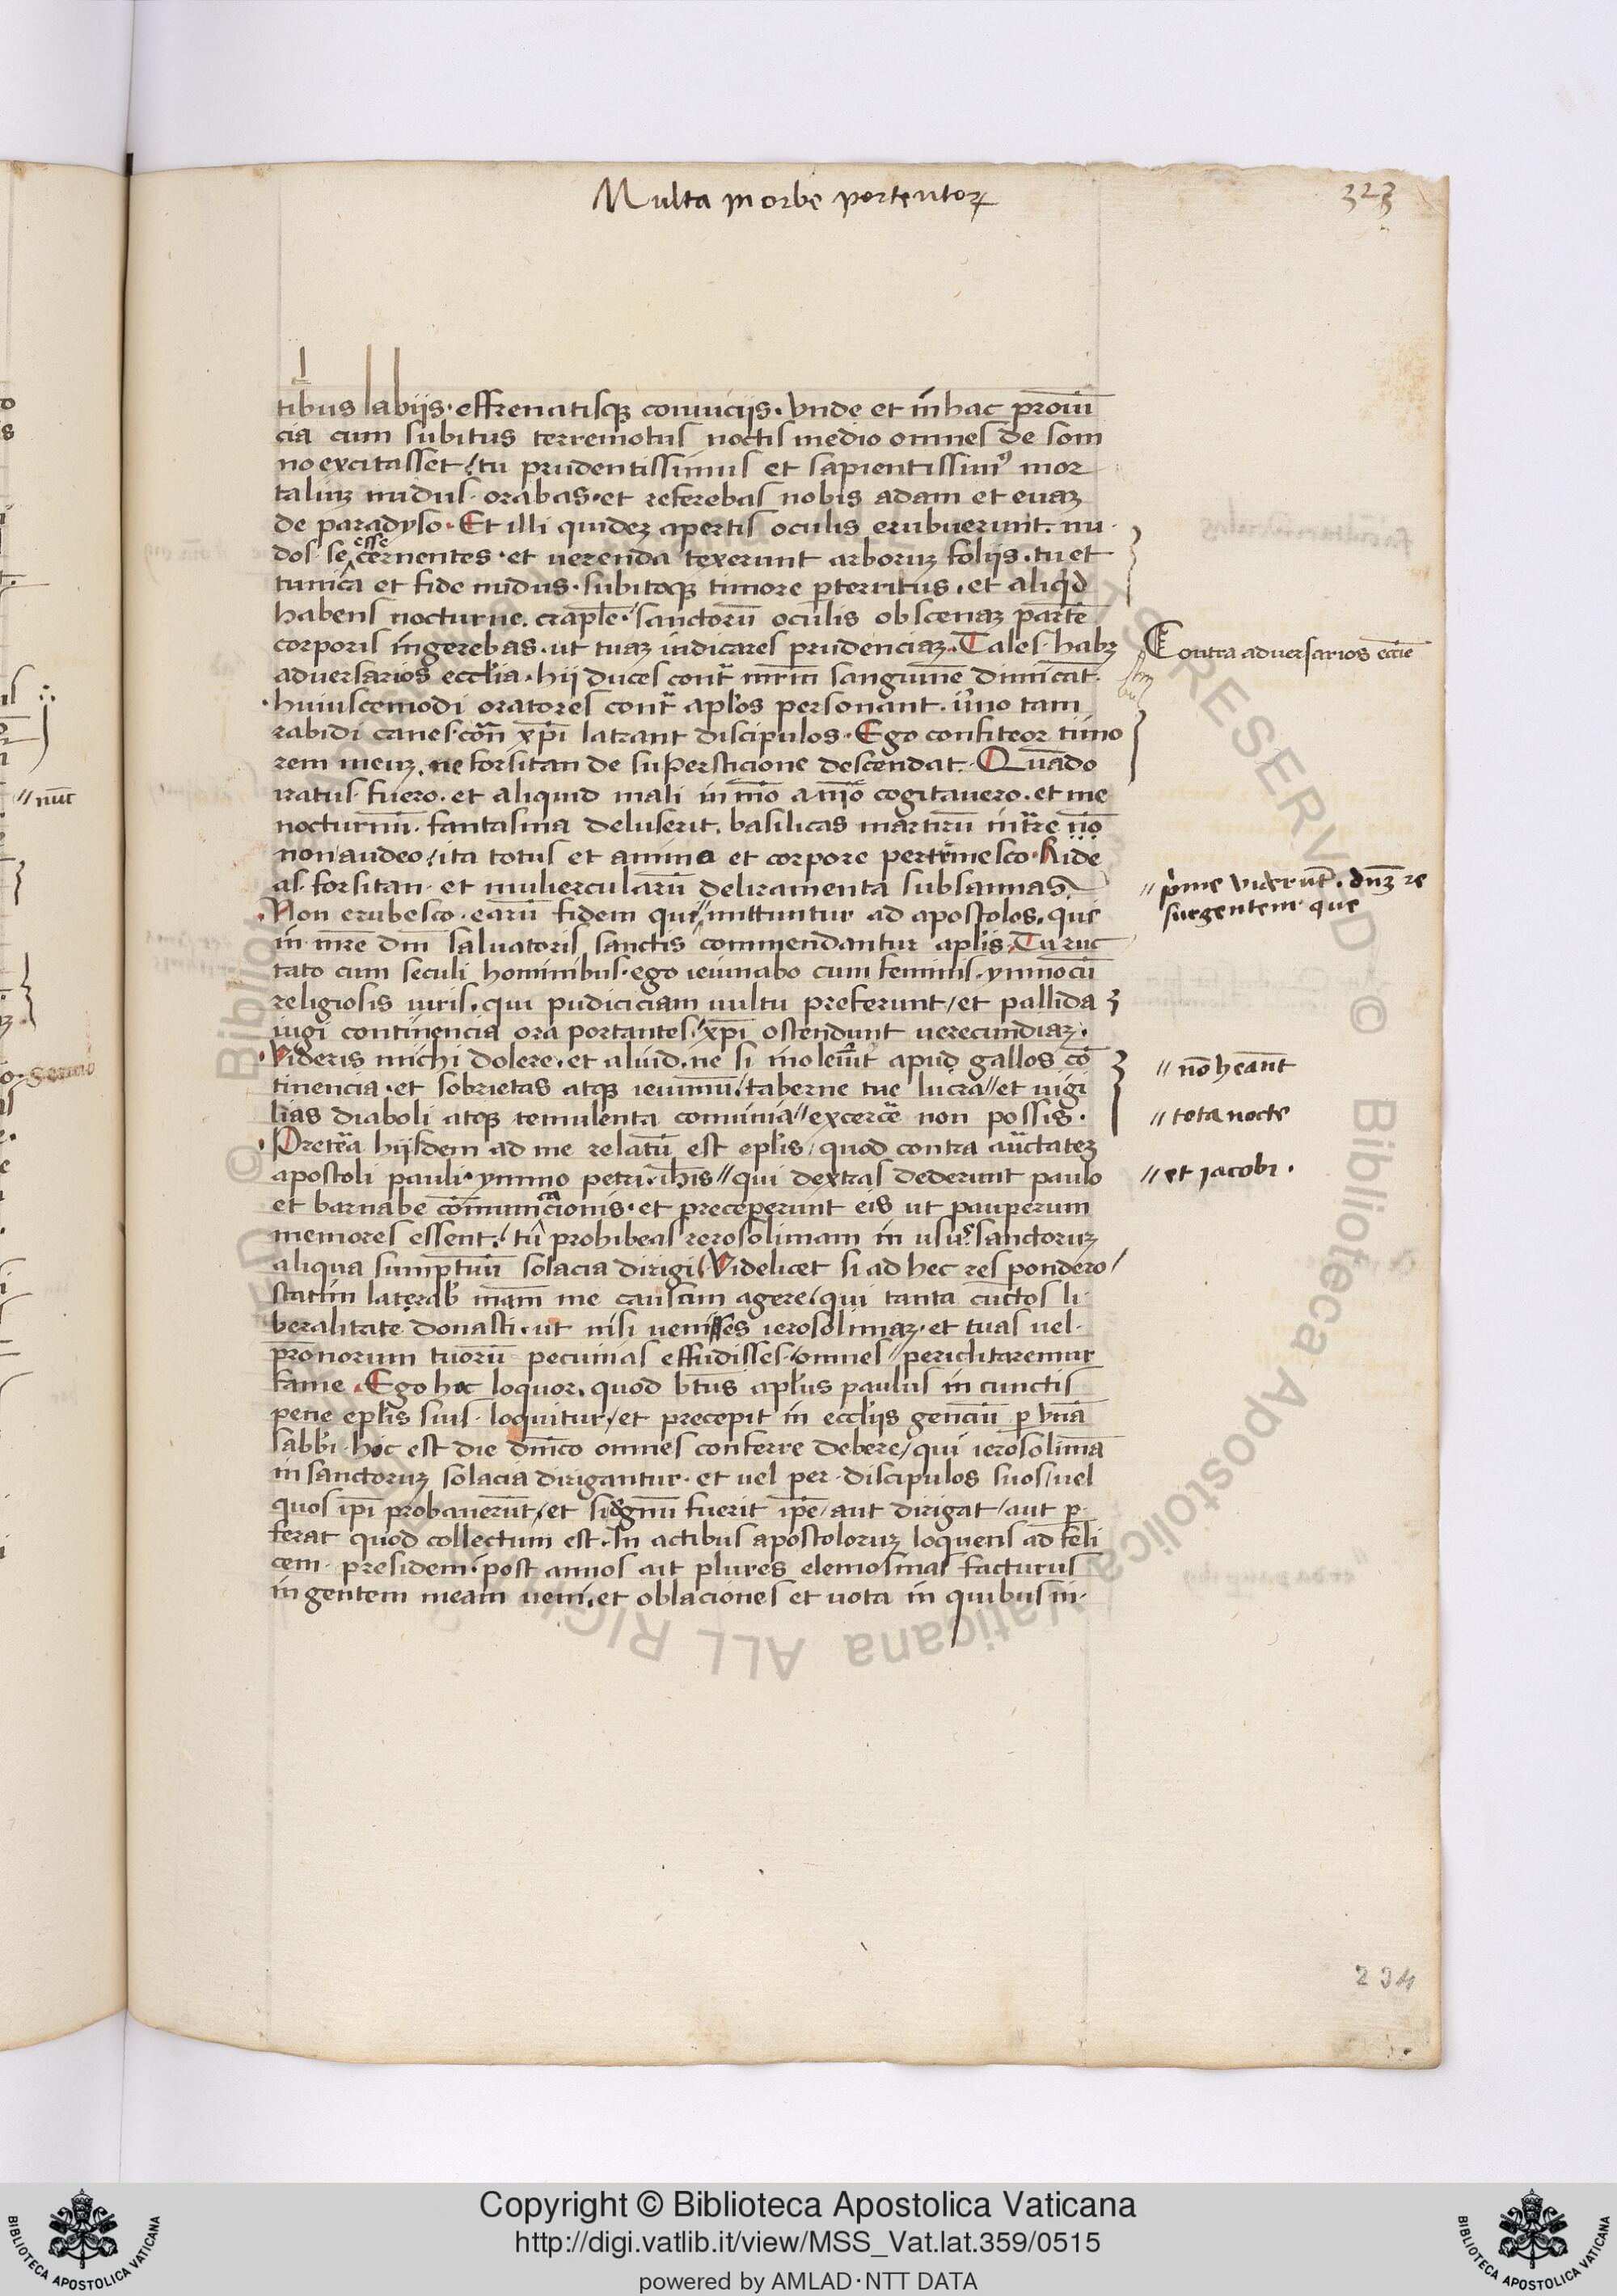 Multa in orbe portentoꝝ
323
tibus labijs · effrenatisqꝫ conuicijs . vnde et in hac prouī
cia cum subitus terremotus noctis medio omnes de som
no excitasset / tu prudentissimus et sapientissimꝰ mor
taliuꝫ nudus · orabas · et referebas nobis adam et euaꝫ
de paradyso · Et illi quideꝫ apertis oculis erubuerunt . nu ·
dos · se esse cernentes · et uerenda texerunt arboruꝫ folijs . tu et
tunica et fide nudus · subitoqꝫ timore ꝑterritus . et aliqͥd
habens nocturne . craplē · sanctorū oculis obscenaꝫ partē
corporis ingerebas . ut tuaꝫ indicares prudenciaꝫ . Tales habꝫ
Contra aduersarios ecclīe
aduersarios eccłia · hij duces contͣ mrm̄ sanguinē dimicāt ·
huiuscemodi oratores contͣ apłos personant . ūno tam
rabidi canes · con̄ xp̄i latrant discipulos · Ego confiteor timo
rem meuꝫ . ne forsitan de supersticione descendat · Quādo
iratus fuero . et aliquid mali in mō anīo cogitauero . et me
nocturnū · fantasma deluserit . basilicas martirū intͣre nō
non audeo / ita totus et anima et corpore pertimesco · Ride
as forsitan · et muliercularū deliramenta subsannas
// pͥme viderūt . dnꝫ re
surgentem que
Non erubesco · earū fidem que // mittuntur ad apostolos . que
in mr̄e dn̄i saluatoris sanctis commendantur apłis · Tu ruc
tato cum seculi hominibus · ego ieiunabo cum feminis . ymmo cū
religiosis uiris . qui pudiciciam uultu preferunt / et pallida
iugi continencia ora portantes / xp̄i ostendunt uerecundiaꝫ .
Videris michi dolere . et aliud . ne si inoleuͥt apud gallos cō
// nō heānt
tinencia · et sobrietas atqꝫ ieiuniū / taberne tue lucra // et uigi
lias diaboli atqꝫ temulenta conuiuia // excercͤe non possis .
// tota nocte
Pretͤa hijsdem ad me relatū est epłis / quod contra auctͣtateꝫ
apostoli pauli · ymmo petri . ioh̄is // qui dextras dederunt paulo
// et jacobi .
et barnabe cōmunicacionis · et preceperunt eis ut pauperum
memores essent / tu prohibeas ierosolimam in usus sanctoruꝫ
aliqua sumptuū solacia dirigi / Videlicet si ad hec res pondero /
statim laterab̄ inām me causam agere / qui tanta cūctos li ·
beralitate donasti · ut nisi uenisses ierosolimaꝫ · et tuas uel ·
pronorum tuorū pecunias effudisses / omnes // periclitaremur
fame . Ego hoc loquor . quod bt̄us apłus paulus in cunctis
pene epłis suis · loquitur / et precepit in eccłijs genciū ꝑ vnā
sabb̄i · hoc est die dn̄ico omnes conferre debere / qui ierosolimā
in sanctoruꝫ solacia dirigantur · et uel per discipulos suos / uel
quos ip̄i probauerīt / et si dignū fuerit ip̄e / aut dirigat / aut ꝑ
ferat quod collectum est . In actibus apostoloruꝫ loquens ad feli
cem · presidem / post annos ait plures elemosinas facturus
in gentem meam ueni . et oblaciones et uota in quibus in ·
234
Copyright © Biblioteca Apostolica Vaticana
http://digi.vatlib.it/view/MSS_Vat.lat.359/0515
powered by AMLAD·NTT DATA